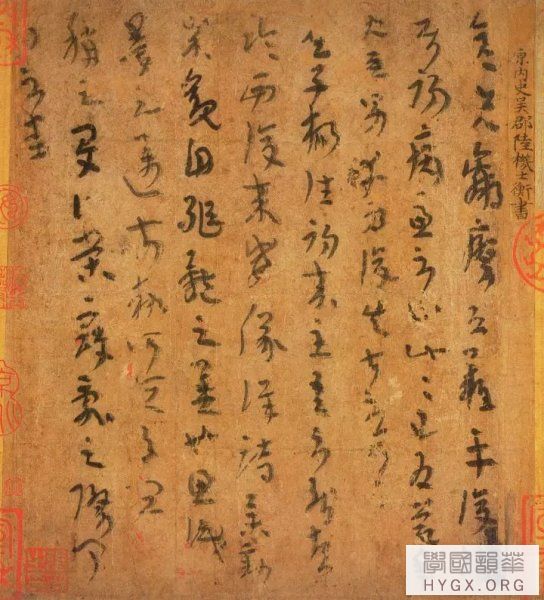 原內史吳郡陸機士衡書
彥先羸瘵恐難平復
往屬初病慮不止此此已為慶
承使唯男幸為復失前憂耳
吳子楊往初來主吾不能盡
臨西復來威儀詳跱舉動
成觀自軀體之美也思識
量之邁前執所恒有宜
稱之夏伯榮寇亂之際聞
問不悉
學國韻華
HYGX.ORG